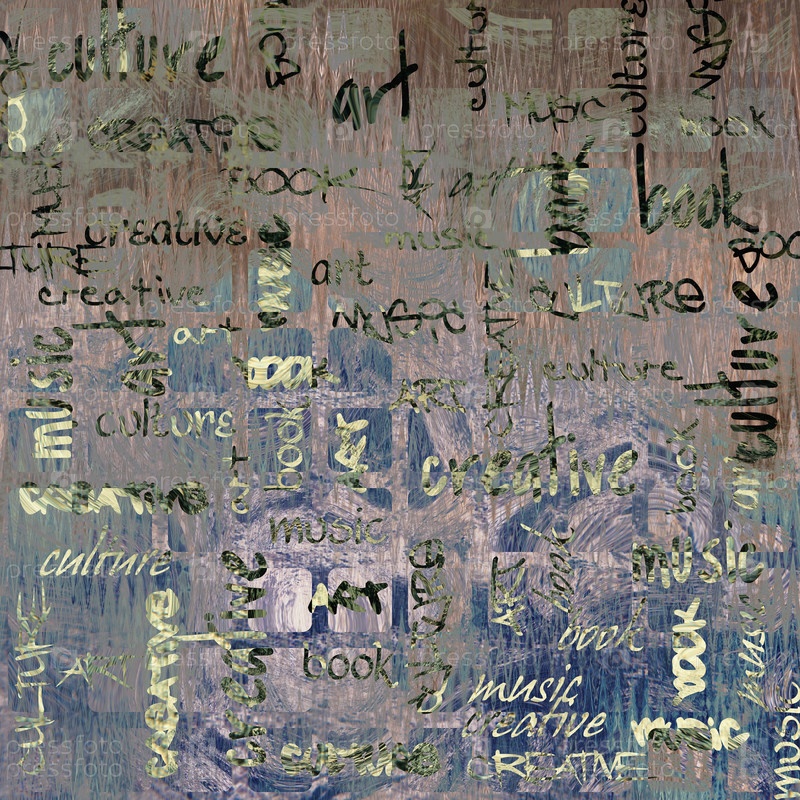 culture
BOOK
art
culture
culture
MUSIC
MUSIC
book
CREATIVE
BOOK
art
art
book
book
music
creative
music
BOOK
creative
art
MUSIC
CULTURE
culture
music
art
art
art
book
culture
ART
culture
book
ART
art
creative
book
art
CREATIVE
music
culture
creative
ART
CREATIVE
ART
book
music
book
CULTURE
ART
CREATIVE
book
book
music
music
creative
music
music
CULTURE
CREATIVE
pressfoto